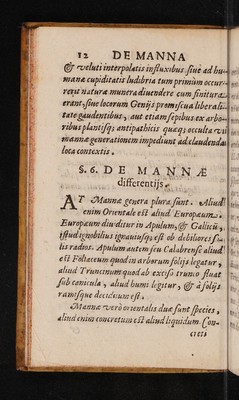 12 DE MANNA
& veluti interpolatis influxibus sive ad hu-
manæ cupiditatis ludibria tum primium occur-
rerit natura munera divendere cum finitura
erant, sive locorum Genijs promiscua liberali-
tate gaudentibus, aut etiam sepibus ex arbo-
ribus plantisq; antipathicis quæq; occulta vi
mannæ generationem impediunt ad claudenda
loca contextis.
§. 6. DE MANNÆ
differentijs.
AT Mannæ genera plura sunt. Aliud
enim Orientale est aliud Europæum.
Europæum dividitur in Apulum, & Gallicū,
istud ignobilius ignaviusq; est ob debiliores so-
lis radios. Apulum autem seu Calabrense aliud
est Foliaceum quod in arborum folijs legitur,
aliud Truncinum quod ab exciso trunco fluat
sub canicula, aliud humi legitur, & à folijs
ramisque deciduum est.
Mannæ verò orientalis duæ sunt species,
aliud enim concretum est aliud liquidum. Con-
creti